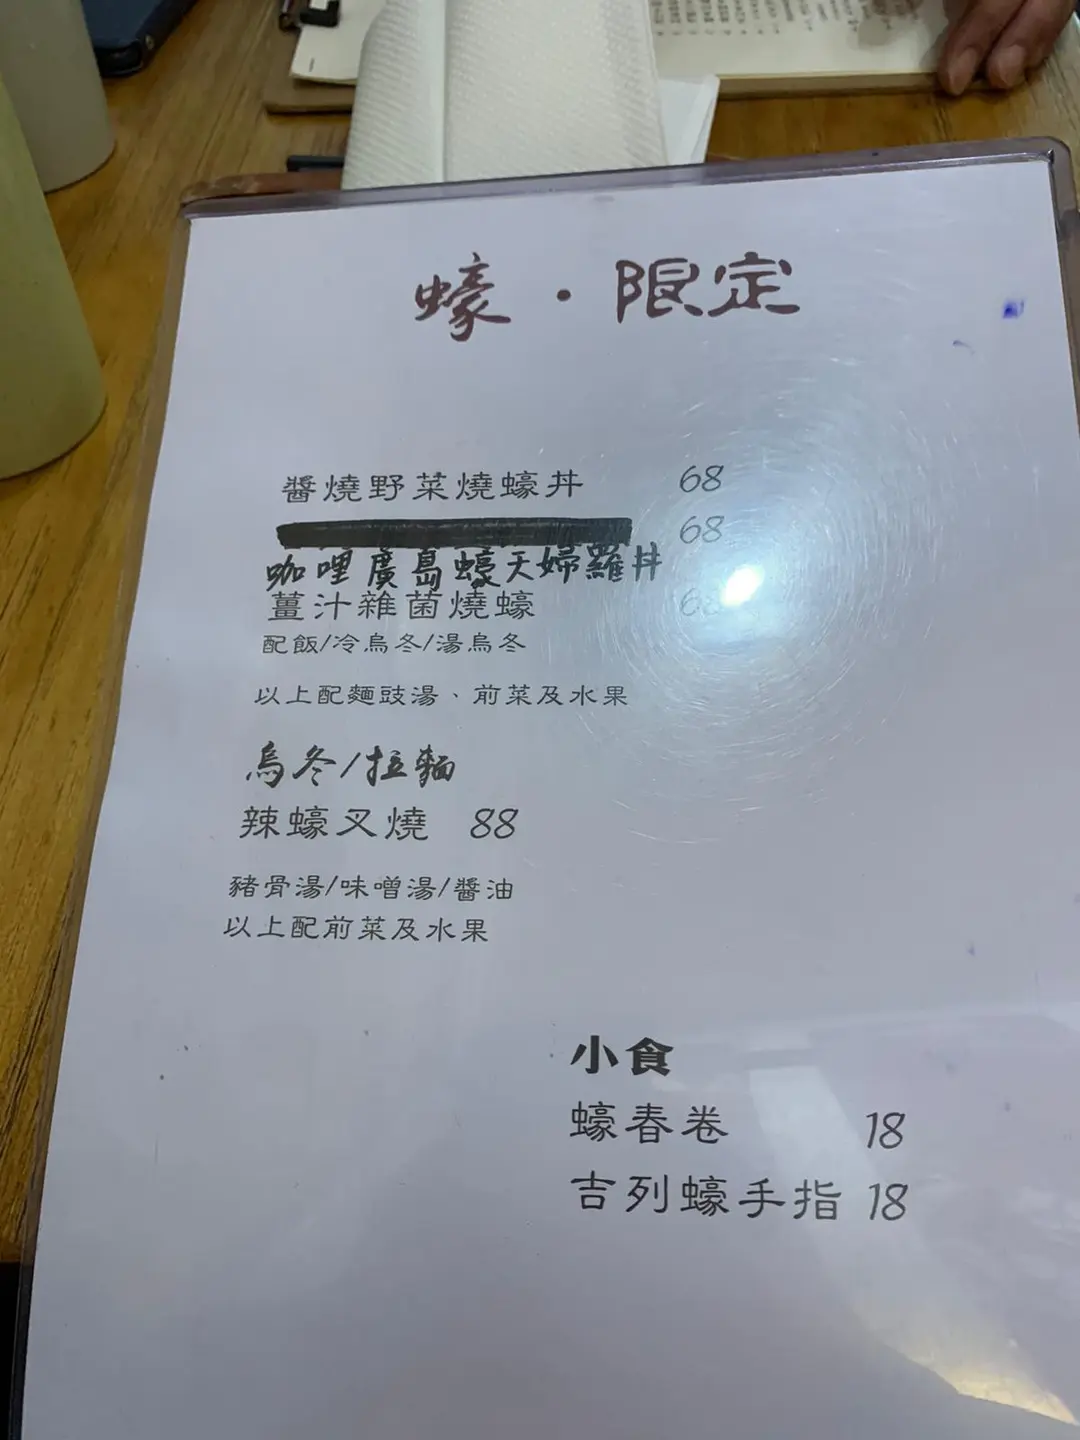 蠔·限定
醬燒野菜燒蠔丼 68
68
咖哩廣島蠔天婦羅丼
薑汁雜菌燒蠔 68
配飯/冷烏冬/湯烏冬
以上配麵豉湯、前菜及水果
烏冬/拉麵
辣蠔叉燒 88
豬骨湯/味噌湯/醬油
以上配前菜及水果
小食
蠔春卷 18
吉列蠔手指 18